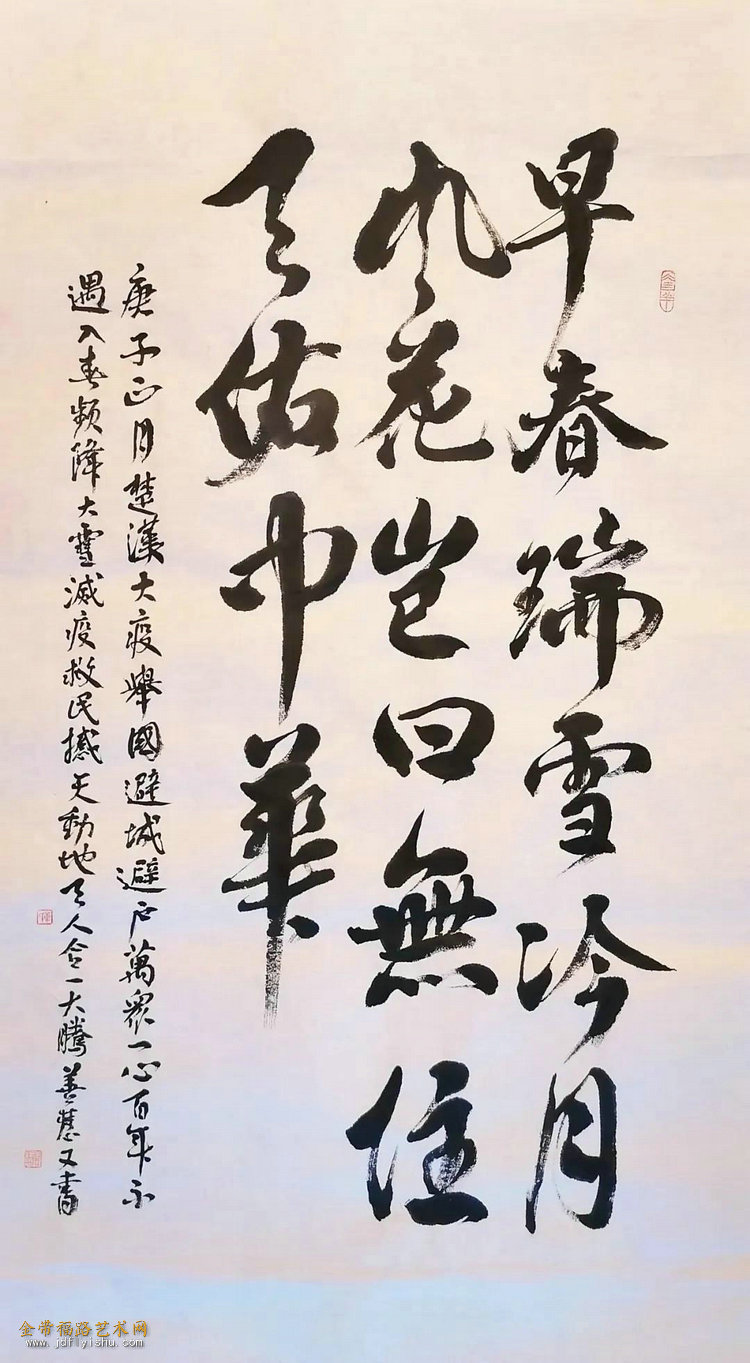 早春瑞雪冷月
風花豈曰無住
天佑中華
庚子正月楚漢大疫舉國避城避户萬眾一心百年不
遇入春頻降大雪滅疫救民撼天動地天人合一大騰善慧又書
金带福路艺术网
www.jdflyishu.com